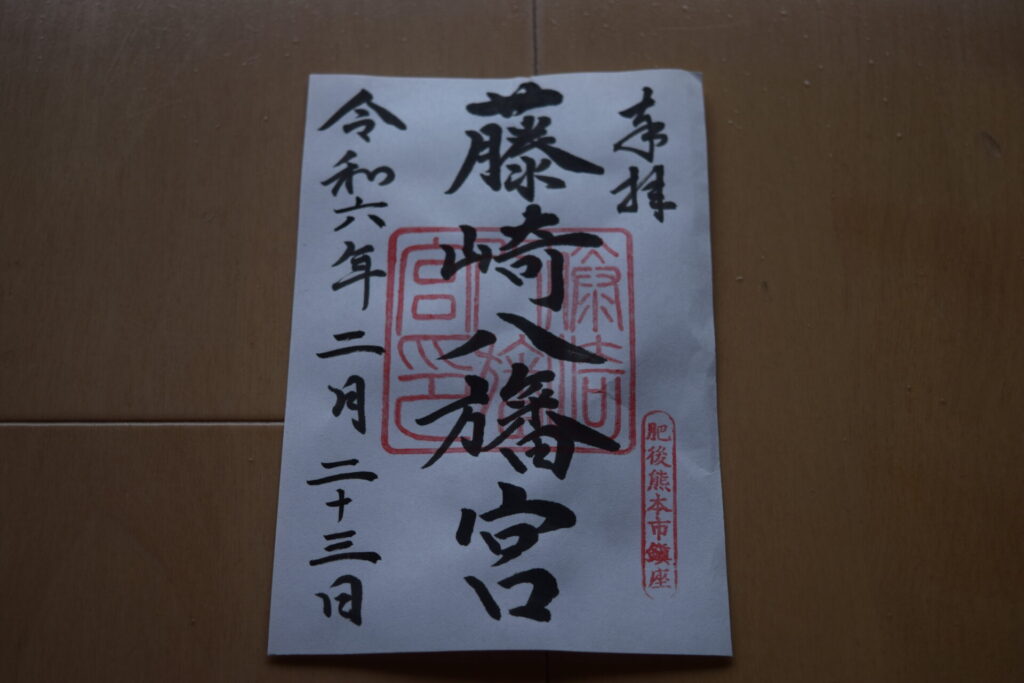 奉拝
藤崎八旛宮
藤崎八旛宮印
肥後熊本市鎮座
令和六年二月二十三日